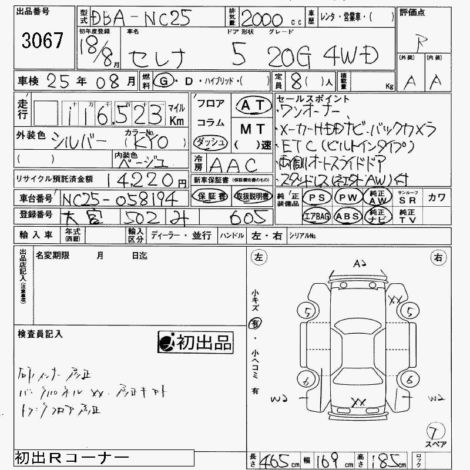 出品番号 3067
型式 DBA-NC25 排気量 2000cc 車歴 レンタ・営業車・( ) 評価点 R
初年度登録 18/8月 車名 セレナ ドア 形状 グレード 5 20G 4WD (外装) A (内装) A
車検 25年08月 燃料 G・D・ハイブリッド・( ) 定員 8( )人 積載量 Kg
走行 116,523 マイル Km
外装色 シルバー カラーNo. (KY0)
( ) 内装色 ベージュ
フロア コラム ダッシュ AT MT ( )速
冷房 AAC
セールスポイント
ワンオーナー
メーカーHDDナビ・バックカメラ
ETC(ビルトインタイプ)
両側オートスライドドア
リサイクル預託済金額 14220円
新車保証書 保証書 取扱説明書
純正装備品 PS PW 純正AW サンルーフ SR カワ
エアBAG ABS 純正ナビ 純正TV
車台番号 NC25-058194
登録番号 大宮 502 み 605
輸入車 年式(西暦) 輸入区分 ディーラー・並行 ハンドル 左・右 シリアルNo.
出品店記入 名変期限 月 日迄
検査員記入
初出品
小キズ 有・小ヘコミ 有
左 右
A2
XX
5 5
6 6
W2 W2
XX
7 スペア
初出Rコーナー
長さ 465cm 幅 169cm 高さ 185cm